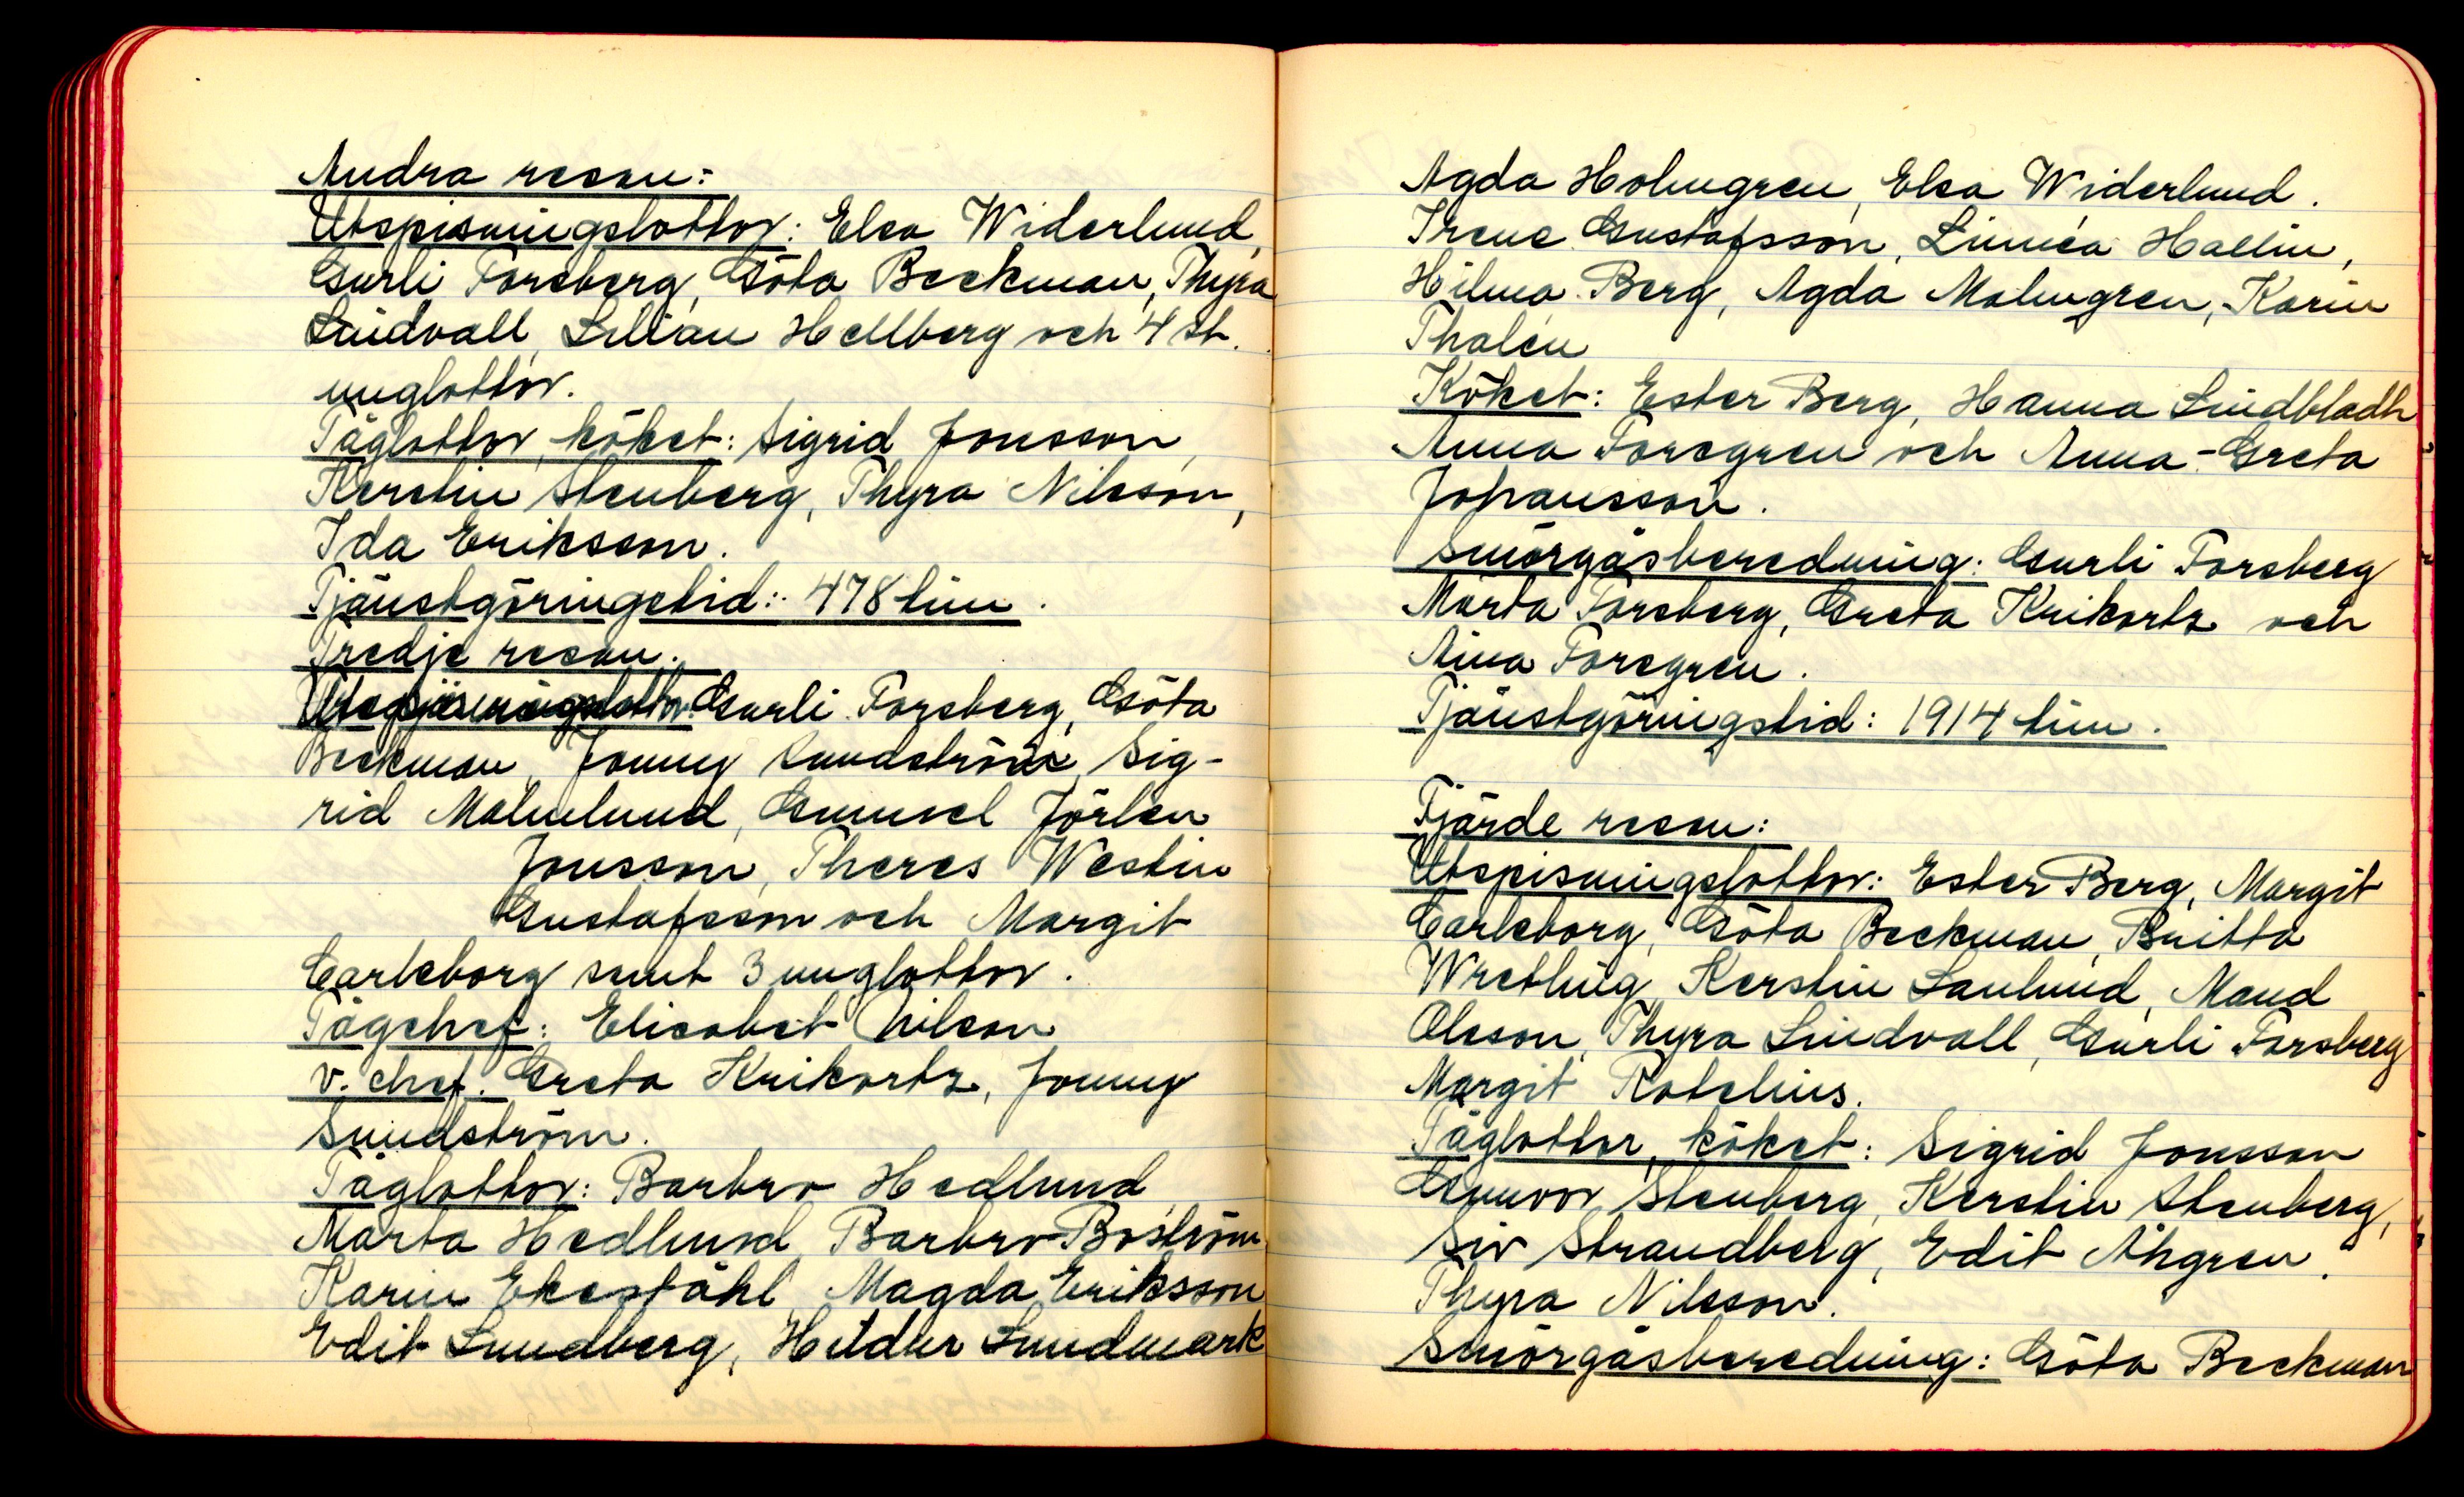 Andra resan:
Utspisningslottor: Elsa Widerlund,
Gurli Forsberg, Göta Beckman, Thyra
Lindvall, Lilian Hellberg och 4 st.
unglottor.
Tåglottor, köket: Sigrid Jonsson,
Kerstin Stenberg, Thyra Nilsson,
Ida Eriksson.
Tjänstgöringstid: 478 tim.
Tredje resan.
Utspisningslottor: Gurli Forsberg, Göta
Beckman, Jonny Sundström, Sig-
rid Malmlund, Gunvel Jörlen
Jonsson, Theres Westin
Gustafsson och Margit
Carlsborg samt 3 unglottor.
Tågchef: Elisabet Nilson
v. chef. Greta Krikortz, Jonny
Sundström.
Tåglottor: Barbro Hedlund
Märta Hedlund, Barbro Boström
Karin Ekeståhl, Magda Eriksson
Edit Lundberg, Hildur Lundmark
Agda Holmgren, Elsa Widerlund.
Irene Gustafsson, Linnéa Hallin,
Hilma Berg, Agda Malmgren, Karin
Thalén
Köket: Ester Berg, Hanna Lindbladh
Anna Forsgren och Anna-Greta
Johansson.
Smörgåsberedning: Gurli Forsberg
Märta Forsberg, Greta Krikortz och
Aina Forsgren.
Tjänstgöringstid: 1914 tim.
Fjärde resan:
Utspisningslottor: Ester Berg, Margit
Carlsborg, Göta Beckman, Britta
Wretling, Kerstin Sanlund, Maud
Olsson, Thyra Lindvall, Gurli Forsberg
Margit Rotelius.
Tåglottor, köket: Sigrid Jonsson
Gunvor Stenberg, Kerstin Stenberg,
Siv Strandberg, Edit Åhgren.
Thyra Nilsson.
Smörgåsberedning: Göta Beckman